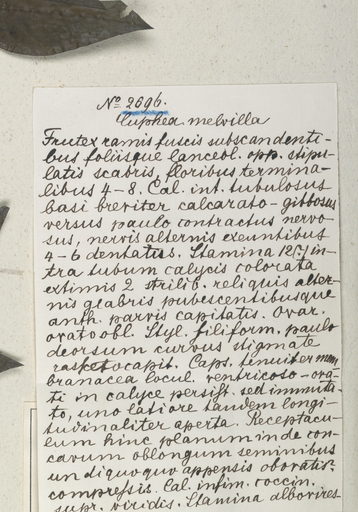 No 2696.
Cuphea melvilla
Frutex ramis fuscis subscandenti-
bus foliisque lanceol. opp. stipu-
latis scabris, floribus termina-
libus 4-8. Cal. inf. tubulosus
basi breviter calcarato-gibbosus
versus paulo contractus nervo-
sus, nervis alternis exeuntibus
4-6 dentatus. Stamina 12(?) in-
tra tubum calycis colorata
extimis 2 steril. reliquis alter-
nis glabris pubescentibusque
anth. parvis capitatis. Ovar.
ovato obl. Styl. filiform. paulo
deorsum curvus stigmate
capit. Caps. tenuiter mem
branacea locul. ventricoso-ova-
ti in calyce persist. sed immuta-
to, uno latiore tandem longi-
tudinaliter aperta. Receptacu-
lum hinc planum inde con-
cavum oblongum seminibus
undiquoquo appensis obovatis.
compressis. Cal. infim. coccin.
supr. viridis. Stamina albovires